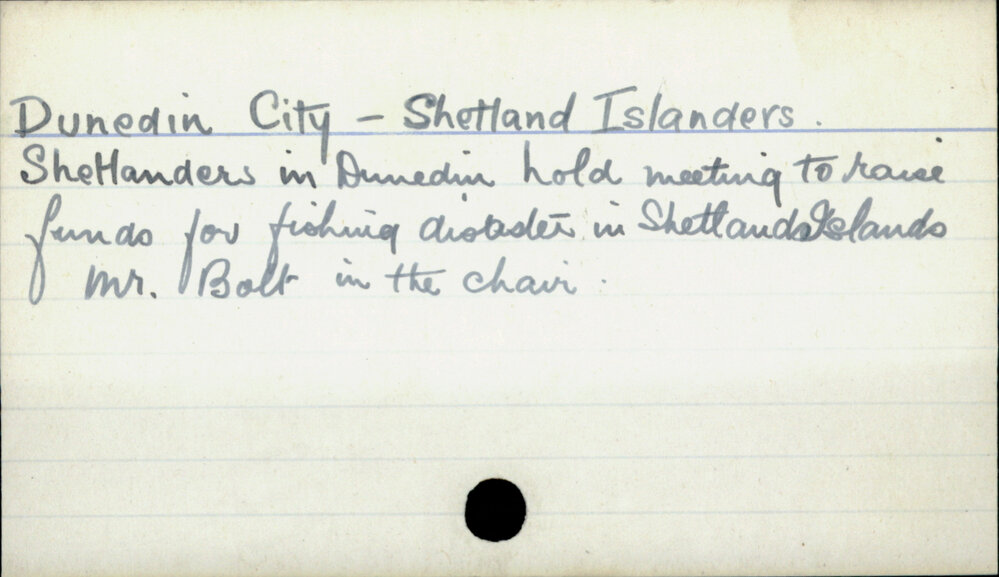 Dunedin City - Shetland Islanders.
Shetlanders in Dunedin hold meeting to raise
funds for fishing disaster in Shetlands Islands
Mr. Bolt in the chair.